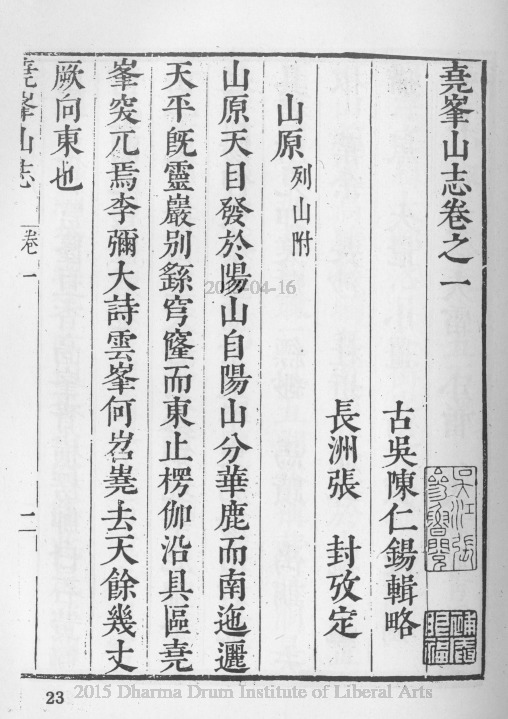 堯峯山志卷之一
古吳陳仁錫輯略
長洲張 封攷定
山原 列山附
山原天目發於陽山自陽山分華鹿而南迤邐
天平旣靈巖別繇穹窿而東止楞伽沿具區堯
峯突兀焉李彌大詩雲峯何岧嶤去天餘幾丈
厥向東也
堯峯山志 卷一 二
23
2015 Dharma Drum Institute of Liberal Arts